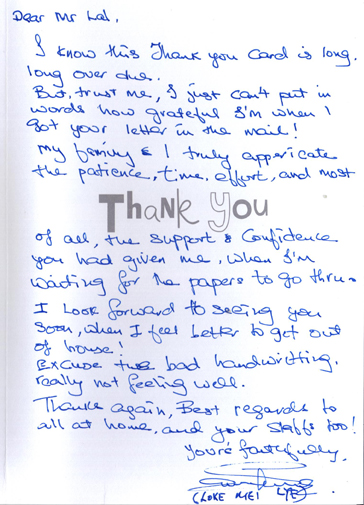 Dear Mr Lal,
I know this Thank you Card is long.
long over due.
But, trust me, I just can't put in
words how grateful I'm when I
Got your letter in the mail!
My family & I truly appericate
the patience, time, effort, and most
Thank You
of all, the support & Confidence
you had given me, when I'm
waiting for the papers to go thru-
I look forward to seeing you
Soon, when I feel better to get out
of house!
Excuse the bad handwritting.
really not feeling well.
Thanks again, Best regards to
all at home, and your Staffs too!
Yours faithfully,
(LOKE MEI LYE)